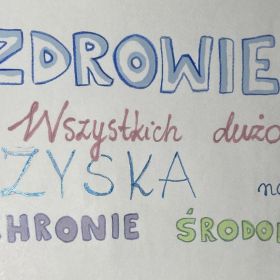 ZDROWIE
Wszystkich dużo
ZYSKA na
CHRONIE ŚRODO